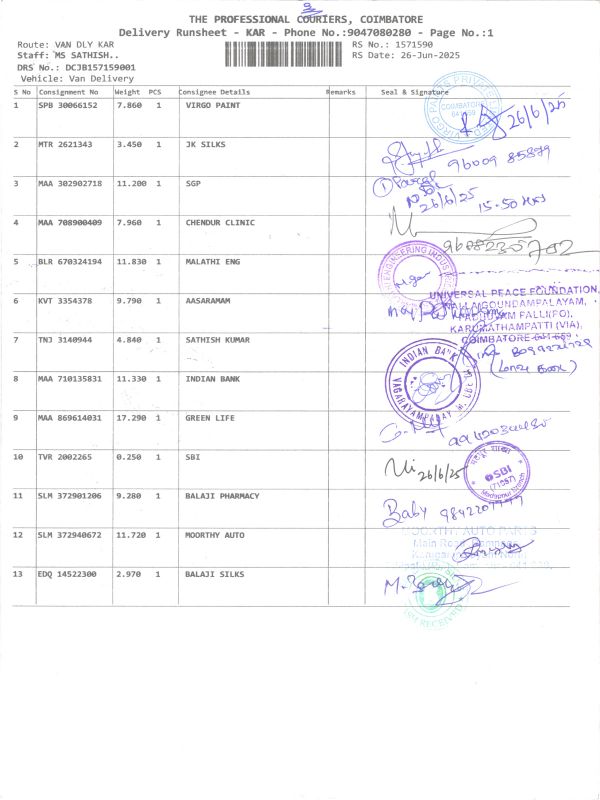 THE PROFESSIONAL COURIERS, COIMBATORE
Delivery Runsheet - KAR - Phone No.:9047080280 - Page No.:1
Route: VAN DLY KAR RS No.: 1571590
Staff: MS SATHISH.. RS Date: 26-Jun-2025
DRS No.: DCJB157159001
Vehicle: Van Delivery
S No Consignment No Weight PCS Consignee Details Remarks Seal & Signature
1 SPB 30066152 7.860 1 VIRGO PAINT
COIMBATORE
26/6/25
2 MTR 2621343 3.450 1 JK SILKS
96009 85879
3 MAA 302902718 11.200 1 SGP
1
26/6/25 15.50 Hrs
4 MAA 708900409 7.960 1 CHENDUR CLINIC
5 BLR 670324194 11.830 1 MALATHI ENG
ENGINEERING
6 KVT 3354378 9.790 1 AASARAMAM
UNIVERSAL PEACE FOUNDATION,
KARUMATHAMPATTI (VIA),
7 TNJ 3140944 4.840 1 SATHISH KUMAR
COIMBATORE-641 659
8 MAA 710135831 11.330 1 INDIAN BANK
INDIAN BANK
9 MAA 869614031 17.290 1 GREEN LIFE
10 TVR 2002265 0.250 1 SBI
26/6/25
SBI
11 SLM 372901206 9.280 1 BALAJI PHARMACY
Baby
12 SLM 372940672 11.720 1 MOORTHY AUTO
MOORTHY AUTO PARTS
Main Road
13 EDQ 14522300 2.970 1 BALAJI SILKS
RECEIVED